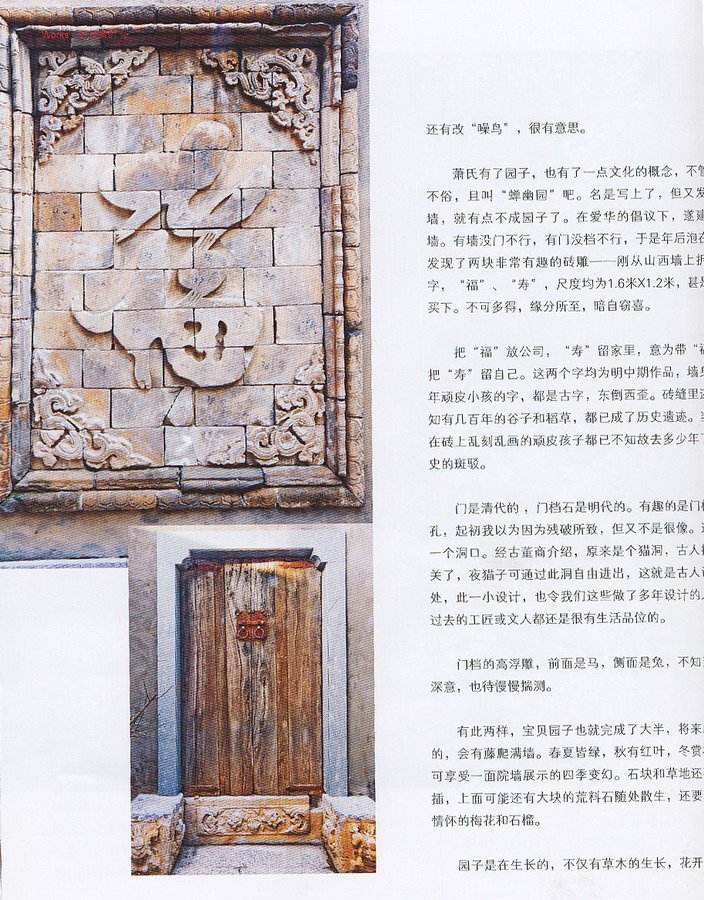 Works
还有改“噪鸟”，很有意思。
萧氏有了园子，也有了一点文化的概念，不管
不俗，且叫“蝉幽园”吧。名是写上了，但又发
墙，就有点不成园子了。在爱华的倡议下，遂建
墙。有墙没门不行，有门没档不行，于是年后泡在
发现了两块非常有趣的砖雕——刚从山西墙上拆
字，“福”、“寿”，尺度均为1.6米X1.2米，甚是
买下。不可多得，缘分所至，暗自窃喜。
把“福”放公司，“寿”留家里，意为带“福
把“寿”留自己。这两个字均为明中期作品，墙身
年顽皮小孩的字，都是古字，东倒西歪。砖缝里还
知有几百年的谷子和稻草，都已成了历史遗迹。当
在砖上乱刻乱画的顽皮孩子都已不知故去多少年了
史的斑驳。
门是清代的，门档石是明代的。有趣的是门档
孔，起初我以为因为残破所致，但又不是很像。
一个洞口。经古董商介绍，原来是个猫洞，古人把
关了，夜猫子可通过此洞自由进出，这就是古人
处，此一小设计，也令我们这些做了多年设计的人
过去的工匠或文人都还是很有生活品位的。
门档的高浮雕，前面是马，侧面是兔，不知
深意，也待慢慢揣测。
有此两样，宝贝园子也就完成了大半，将来
的，会有藤爬满墙。春夏皆绿，秋有红叶，冬赏
可享受一面院墙展示的四季变幻。石块和草地还
插，上面可能还有大块的荒料石随处散生，还要
情怀的梅花和石榴。
园子是在生长的，不仅有草木的生长，花开